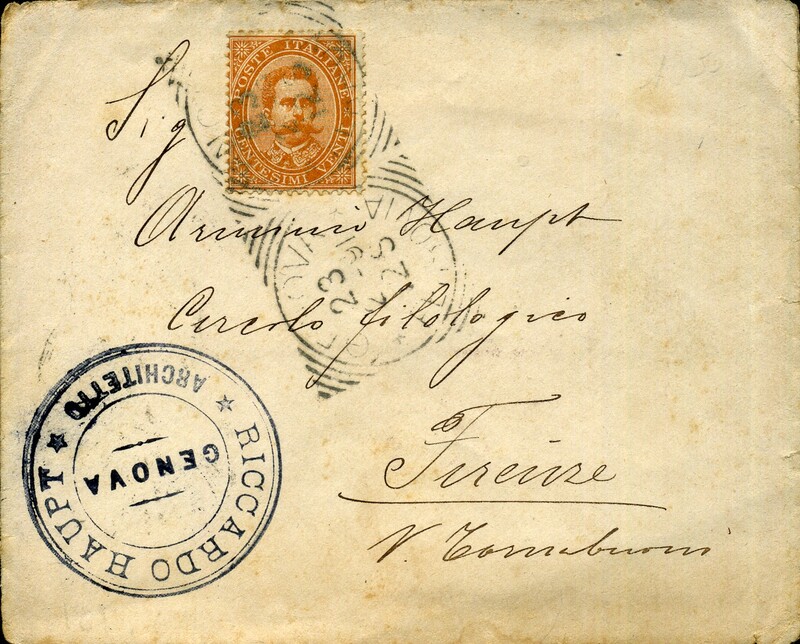 POSTE ITALIANE
CENTESIMI VENTI
Sig
Arminio Haupt
Circolo filologico
Firenze
V. Tornabuoni
GENOVA
23
RICCARDO HAUPT
ARCHITETTO
GENOVA